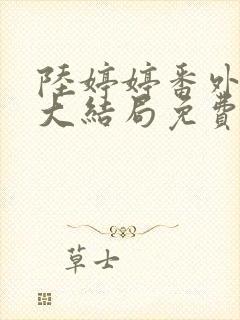 陸婷婷番外
大結局免費
草士